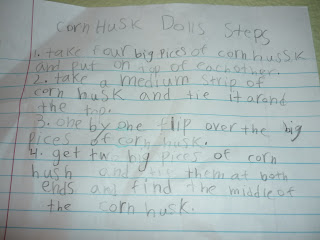 Corn Husk Dolls Steps
1. take four big pices of corn hussk
and put on top of eachother.
2. take a medium strip of
corn husk and tie it arond
the top.
3. one by one flip over the big
pices of corn husk.
4. get two big pices of corn
hush and them at both
ends and find the middle of
the corn husk.